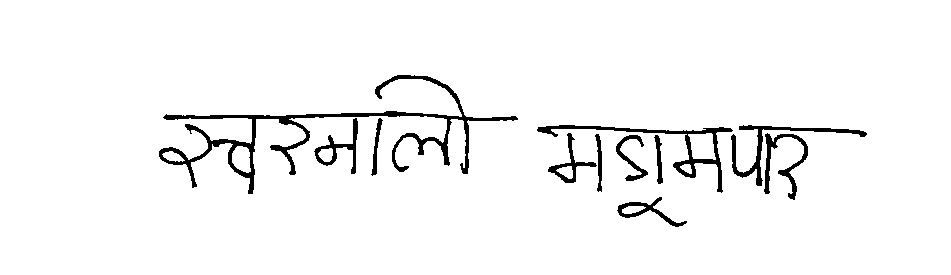 स्वरमाली मजूमपार